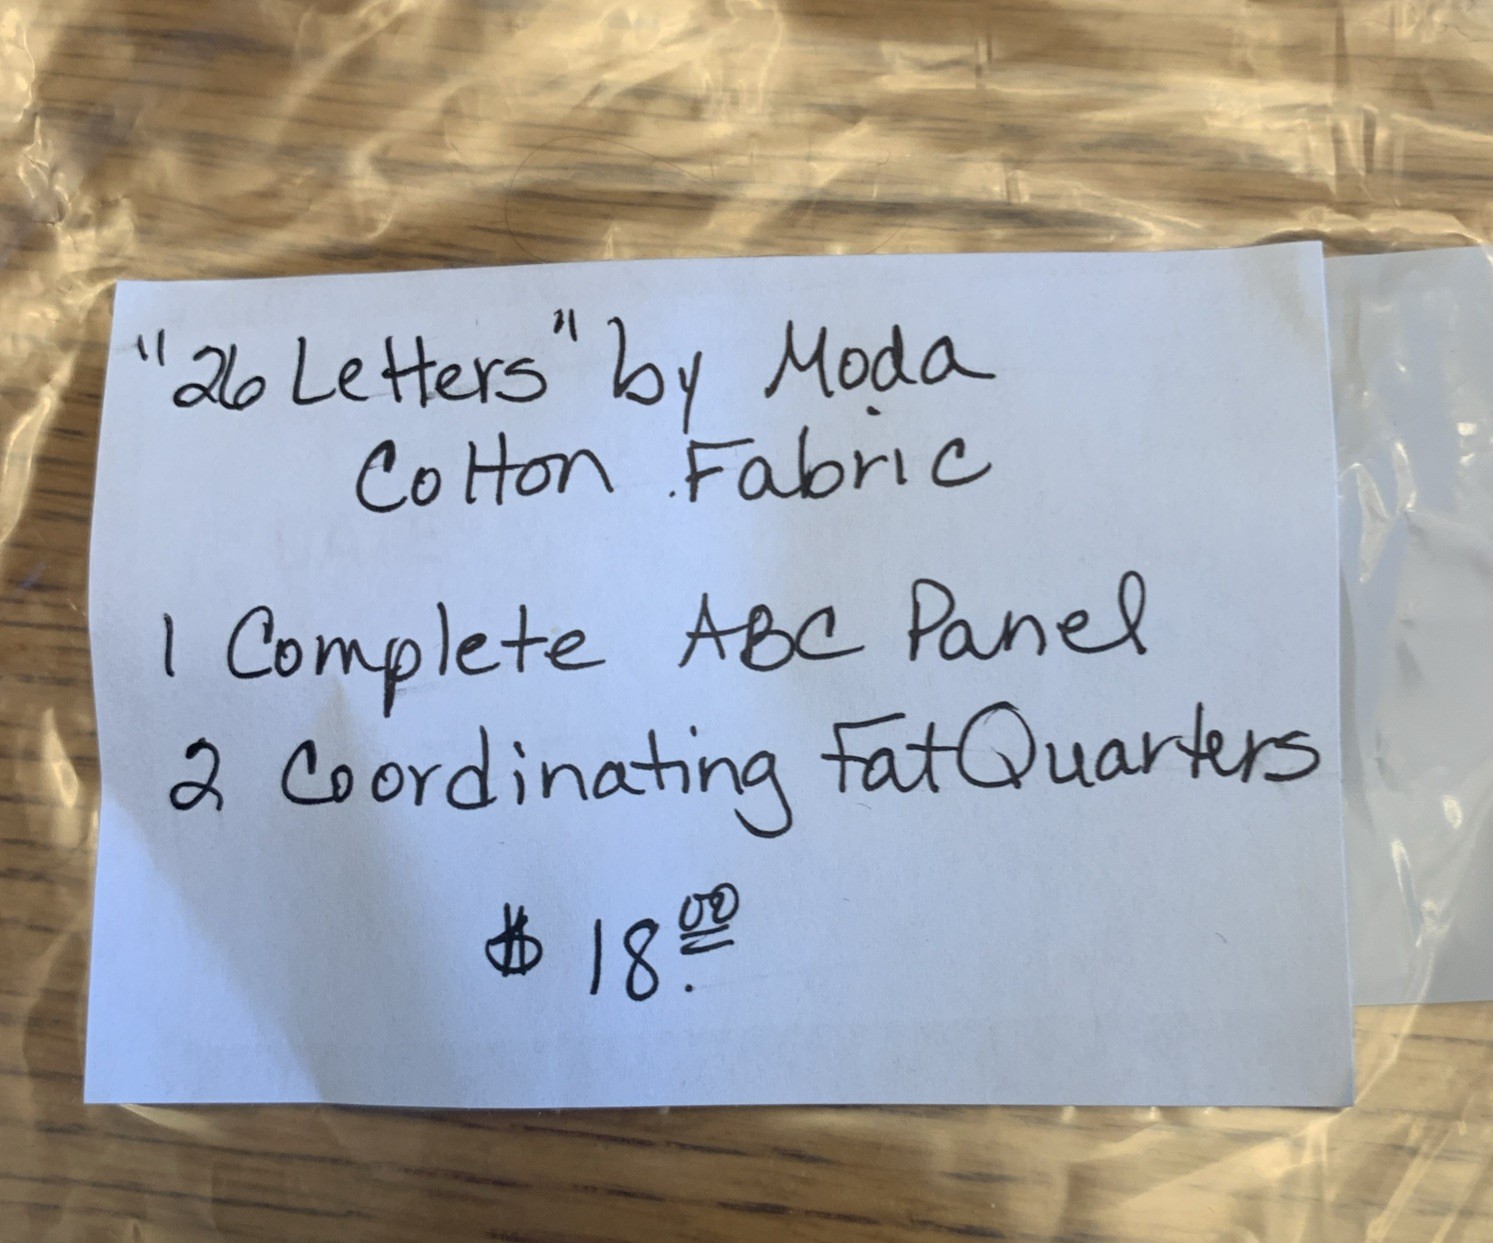 "26 Letters" by Moda
Cotton Fabric
1 Complete ABC Panel
2 Coordinating Fat Quarters
$ 18.00